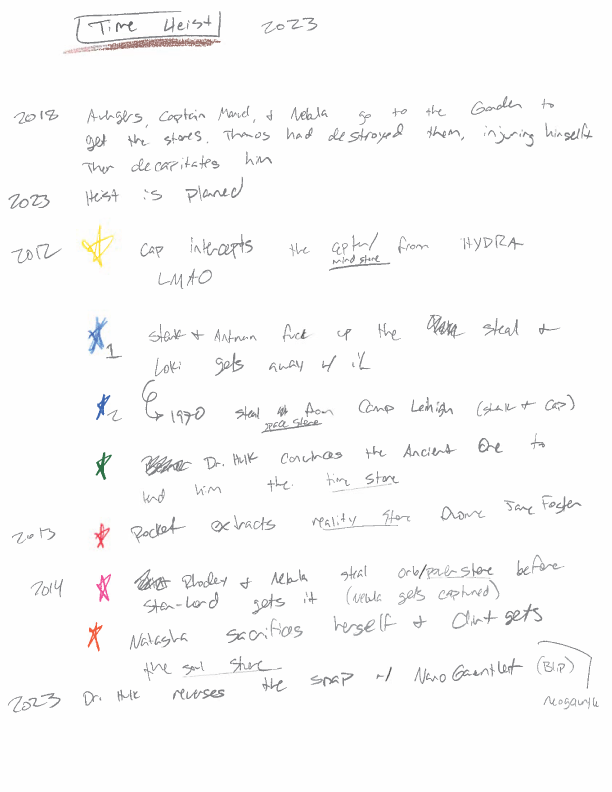 Time Heist 2023
2018 Avengers, Captain Marvel, & Nebula go to the Garden to
get the stones. Thanos had destroyed them, injuring himself
Thor decapitates him
2023 Heist is planned
2012 Cap intercepts the / from HYDRA
mind stone
LMAO
1 Stark & Antman fuck up the steal &
Loki gets away w/ it
2 1970 steal from Camp Lehigh (Stark + Cap)
space stone
Dr. Hulk convinces the Ancient One to
lend him the time stone
2013 Rocket extracts reality stone from Jane Foster
2014 Rhodey & Nebula steal orb/power stone before
Star-Lord gets it (Nebula gets captured)
Natasha sacrifices herself & Clint gets
the soul stone
2023 Dr. Hulk reverses the snap w/ Nano Gauntlet (Blip)